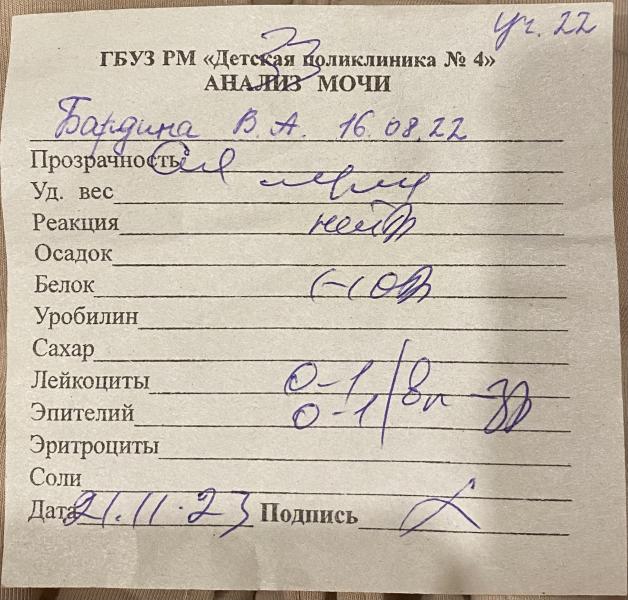 уч. 22
33
ГБУЗ РМ «Детская поликлиника № 4»
АНАЛИЗ МОЧИ
Бардина В. А. 16.08.22
Прозрачность
Уд. вес
Реакция нейтр
Осадок
Белок (-) отр
Уробилин
Сахар
Лейкоциты 0-1
Эпителий 0-1
Эритроциты
Соли
Дата 21.11.23 Подпись